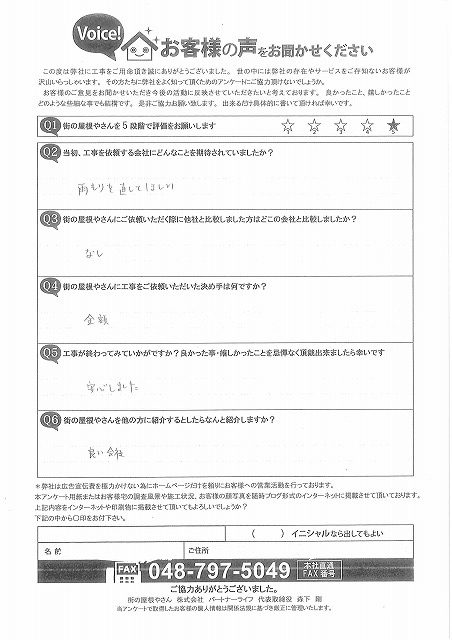 Voice!
お客様の声をお聞かせください
この度は弊社に工事をご用命頂き誠にありがとうございました。世の中には弊社の存在やサービスをご存知ないお客様が
沢山いらっしゃいます。その方たちに弊社をよく知って頂くためのアンケートにご協力頂けないでしょうか。
お客様のご意見をお聞かせいただき今後の活動に反映させていただきたいと考えております。良かったこと、嬉しかったこと
どのような些細な事でも結構です。是非ご協力お願い致します。出来るだけ具体的に書いて頂ければ幸いです。
Q1 街の屋根やさんを5段階で評価をお願いします
1 2 3 4 5
Q2 当初、工事を依頼する会社にどんなことを期待されていましたか？
雨もりを直してほしい
Q3 街の屋根やさんにご依頼いただく際に他社と比較しました方はどこの会社と比較しましたか？
なし
Q4 街の屋根やさんに工事をご依頼いただいた決め手は何ですか？
金額
Q5 工事が終わってみていかがですか？良かった事・嬉しかったことを忌憚なく頂戴出来ましたら幸いです
安心しました
Q6 街の屋根やさんを他の方に紹介するとしたらなんと紹介しますか？
良い会社
＊弊社は広告宣伝費を極力かけない為にホームページだけを頼りにお客様への営業活動を行っております。
本アンケート用紙またはお客様宅の調査風景や施工状況、お客様の顔写真を随時ブログ形式のインターネットに掲載させて頂いております。
上記内容をインターネットや印刷物に掲載させて頂いてもよろしいでしょうか？
下記の中から〇印をお付下さい。
（ ）イニシャルなら出してもよい
名前 ご住所
FAX 048-797-5049 本社直通 FAX番号
ご協力ありがとうございました。
街の屋根やさん 株式会社 パートナーライフ 代表取締役 森下 剛
当アンケートで取得したお客様の個人情報は関係法規に基づき厳正に管理いたします。